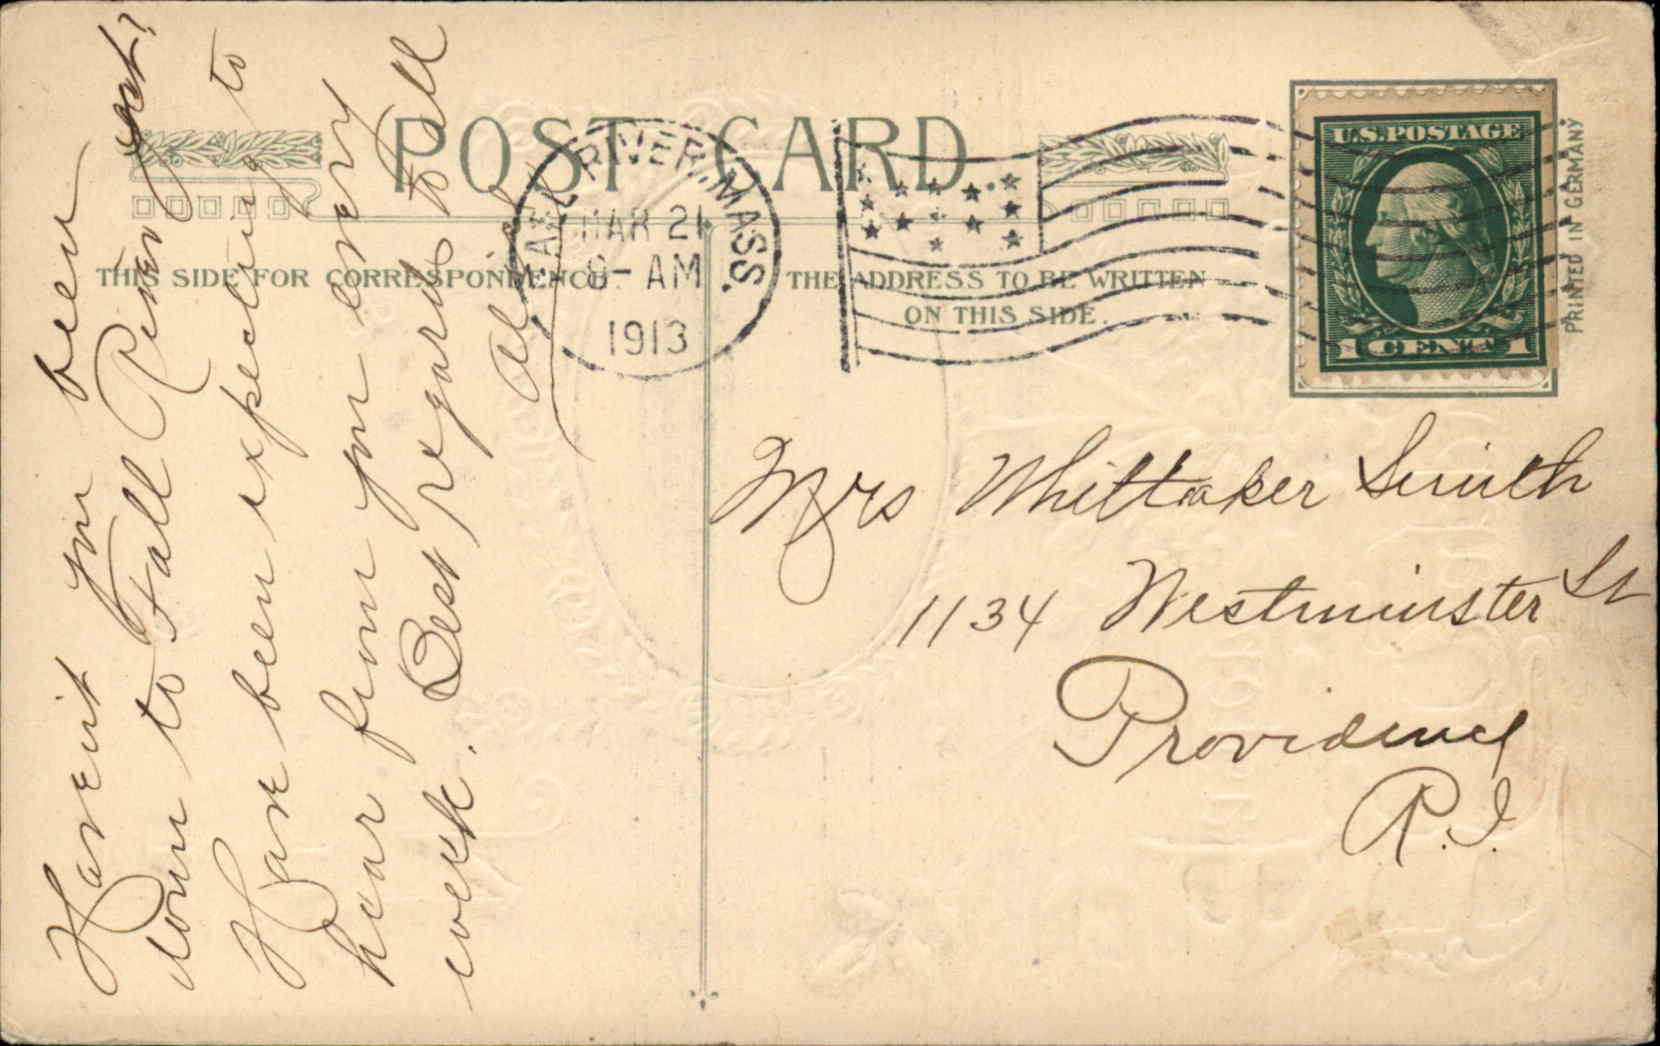 POST CARD
THIS SIDE FOR CORRESPONDENCE
THE ADDRESS TO BE WRITTEN
ON THIS SIDE.
FALL RIVER, MASS.
MAR 21
8- AM
1913
U.S. POSTAGE
1 CENT 1
PRINTED IN GERMANY
Mrs Whittaker Smith
1134 Westminster St
Providence
R.I.
Havent you been
down to Fall River yet?
Have been expecting to
hear from you every
week. Best regards to all